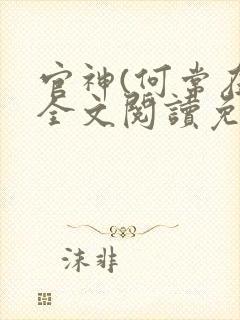 官神(何常在
全文閱讀免
沫非